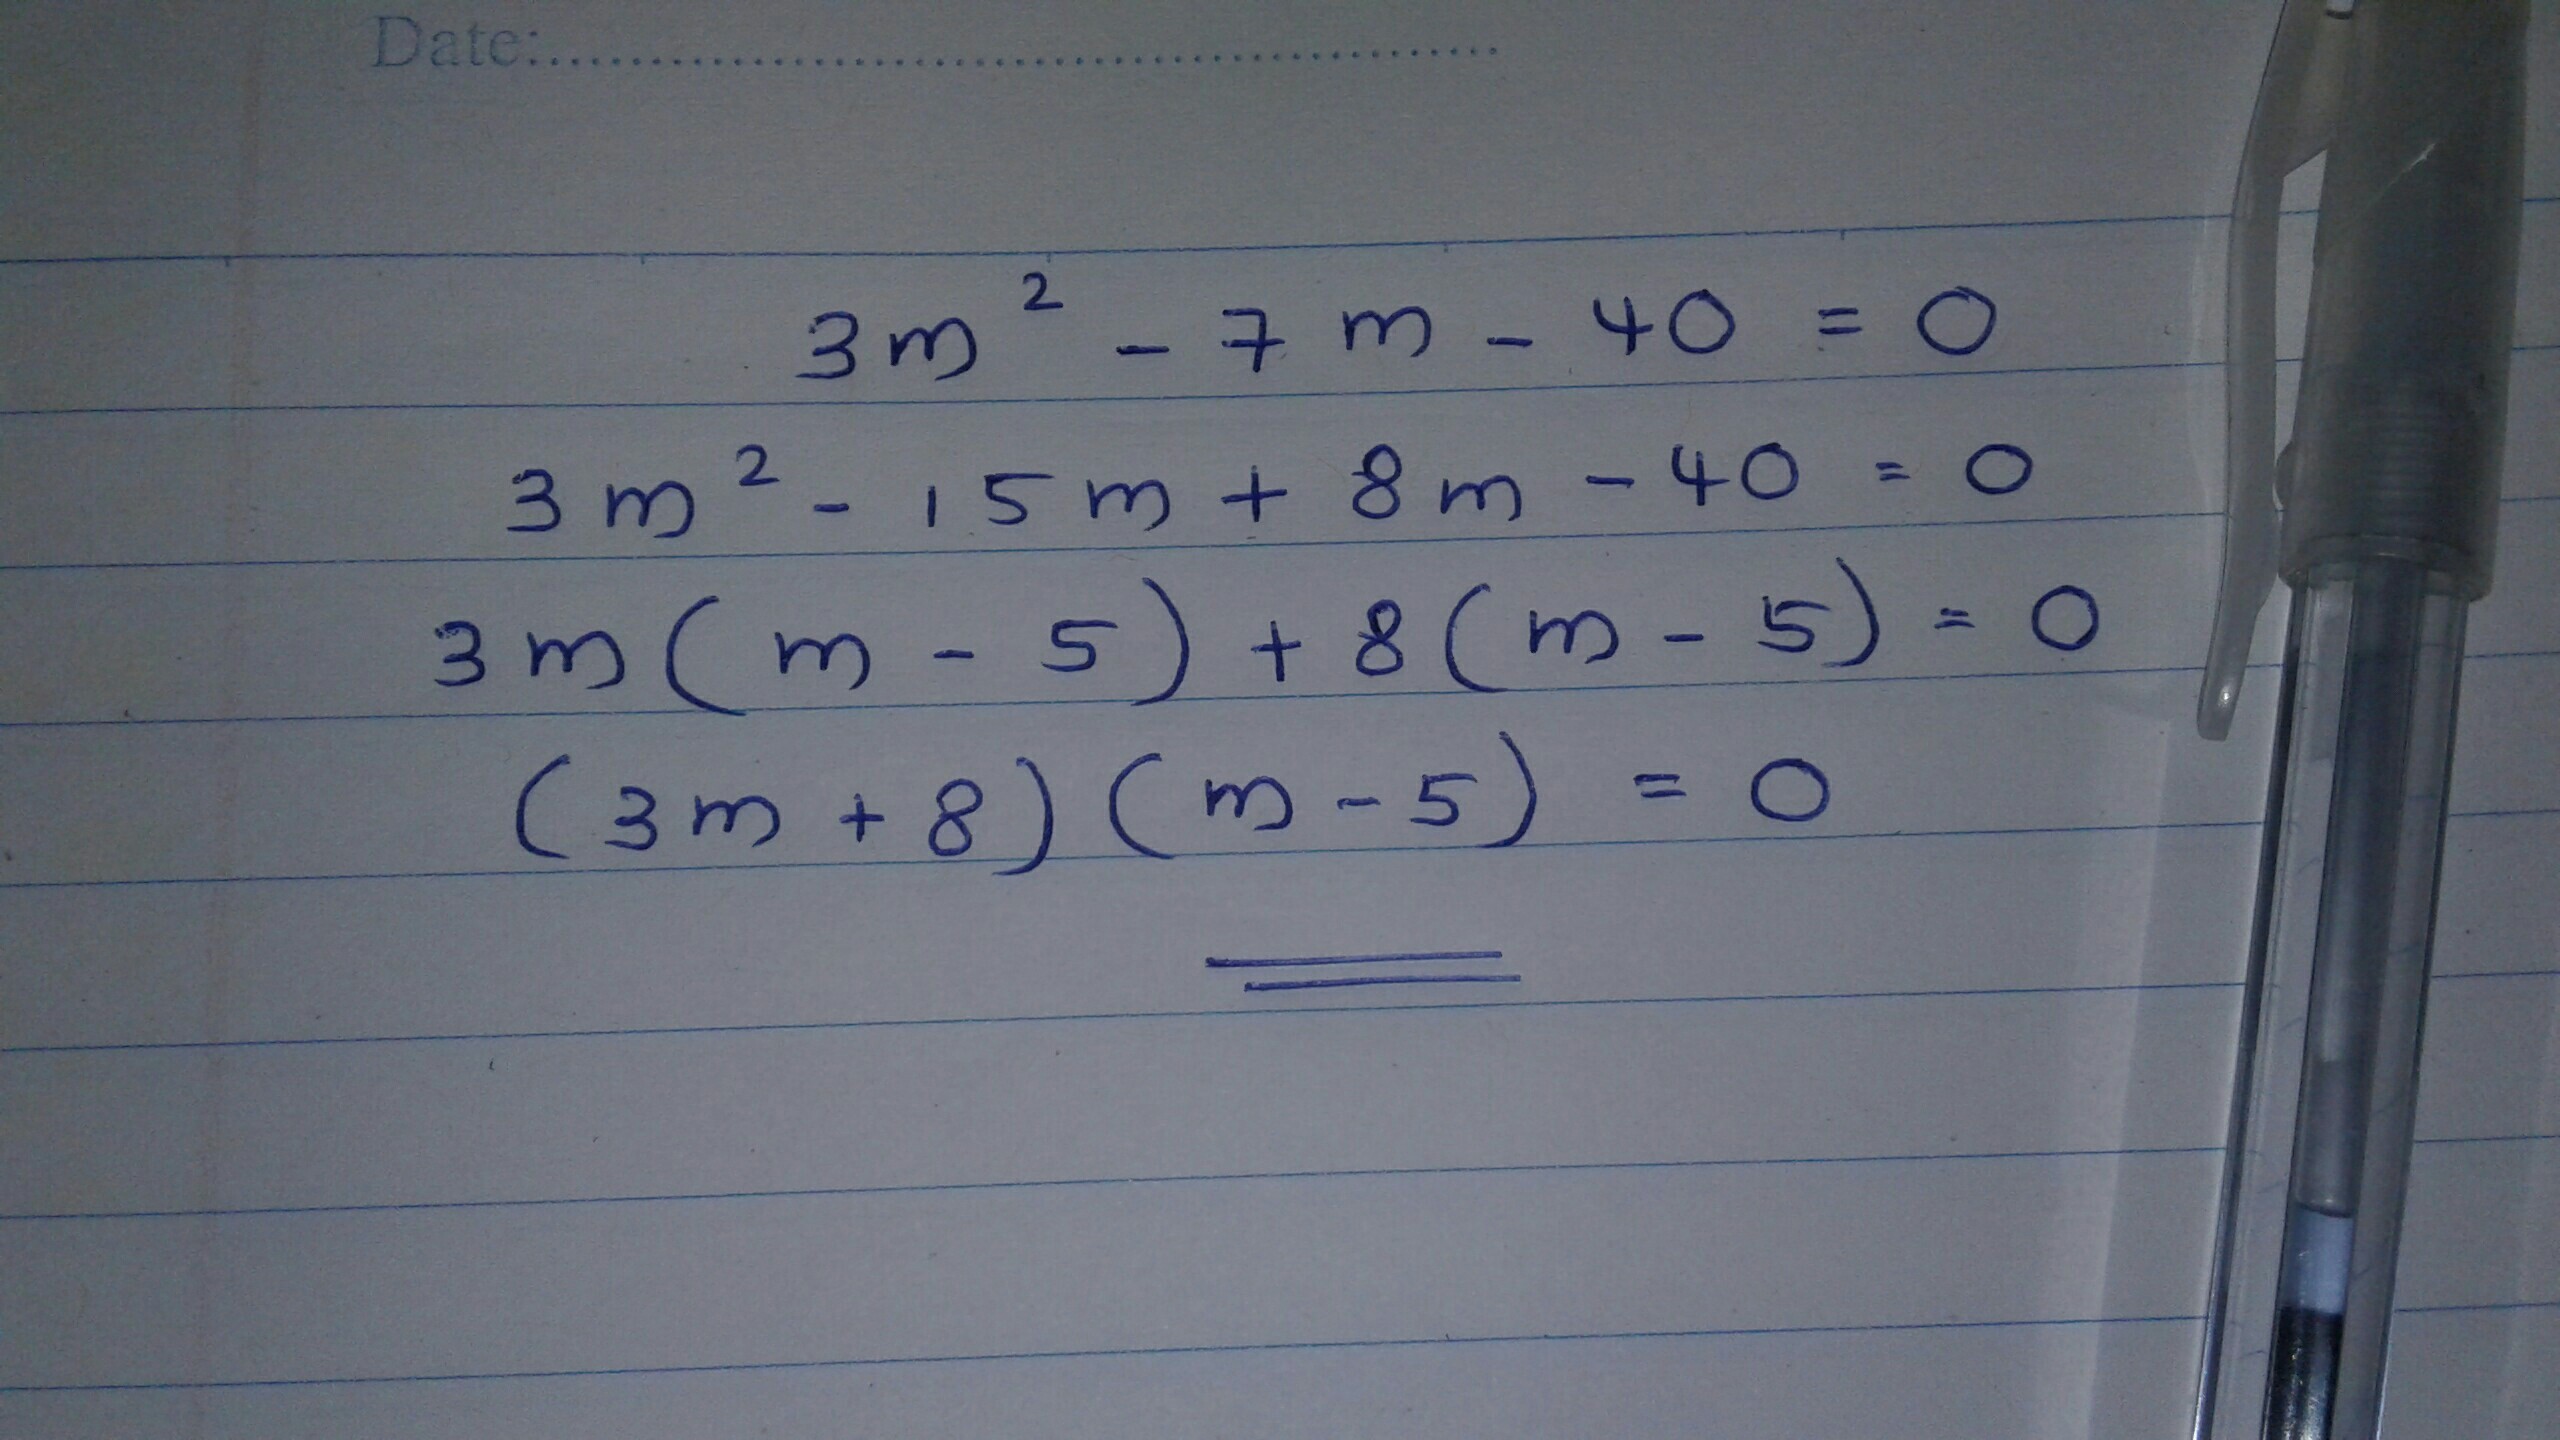 Date:..........................................
3m² - 7m - 40 = 0
3m² - 15m + 8m - 40 = 0
3m(m - 5) + 8(m - 5) = 0
(3m + 8)(m - 5) = 0